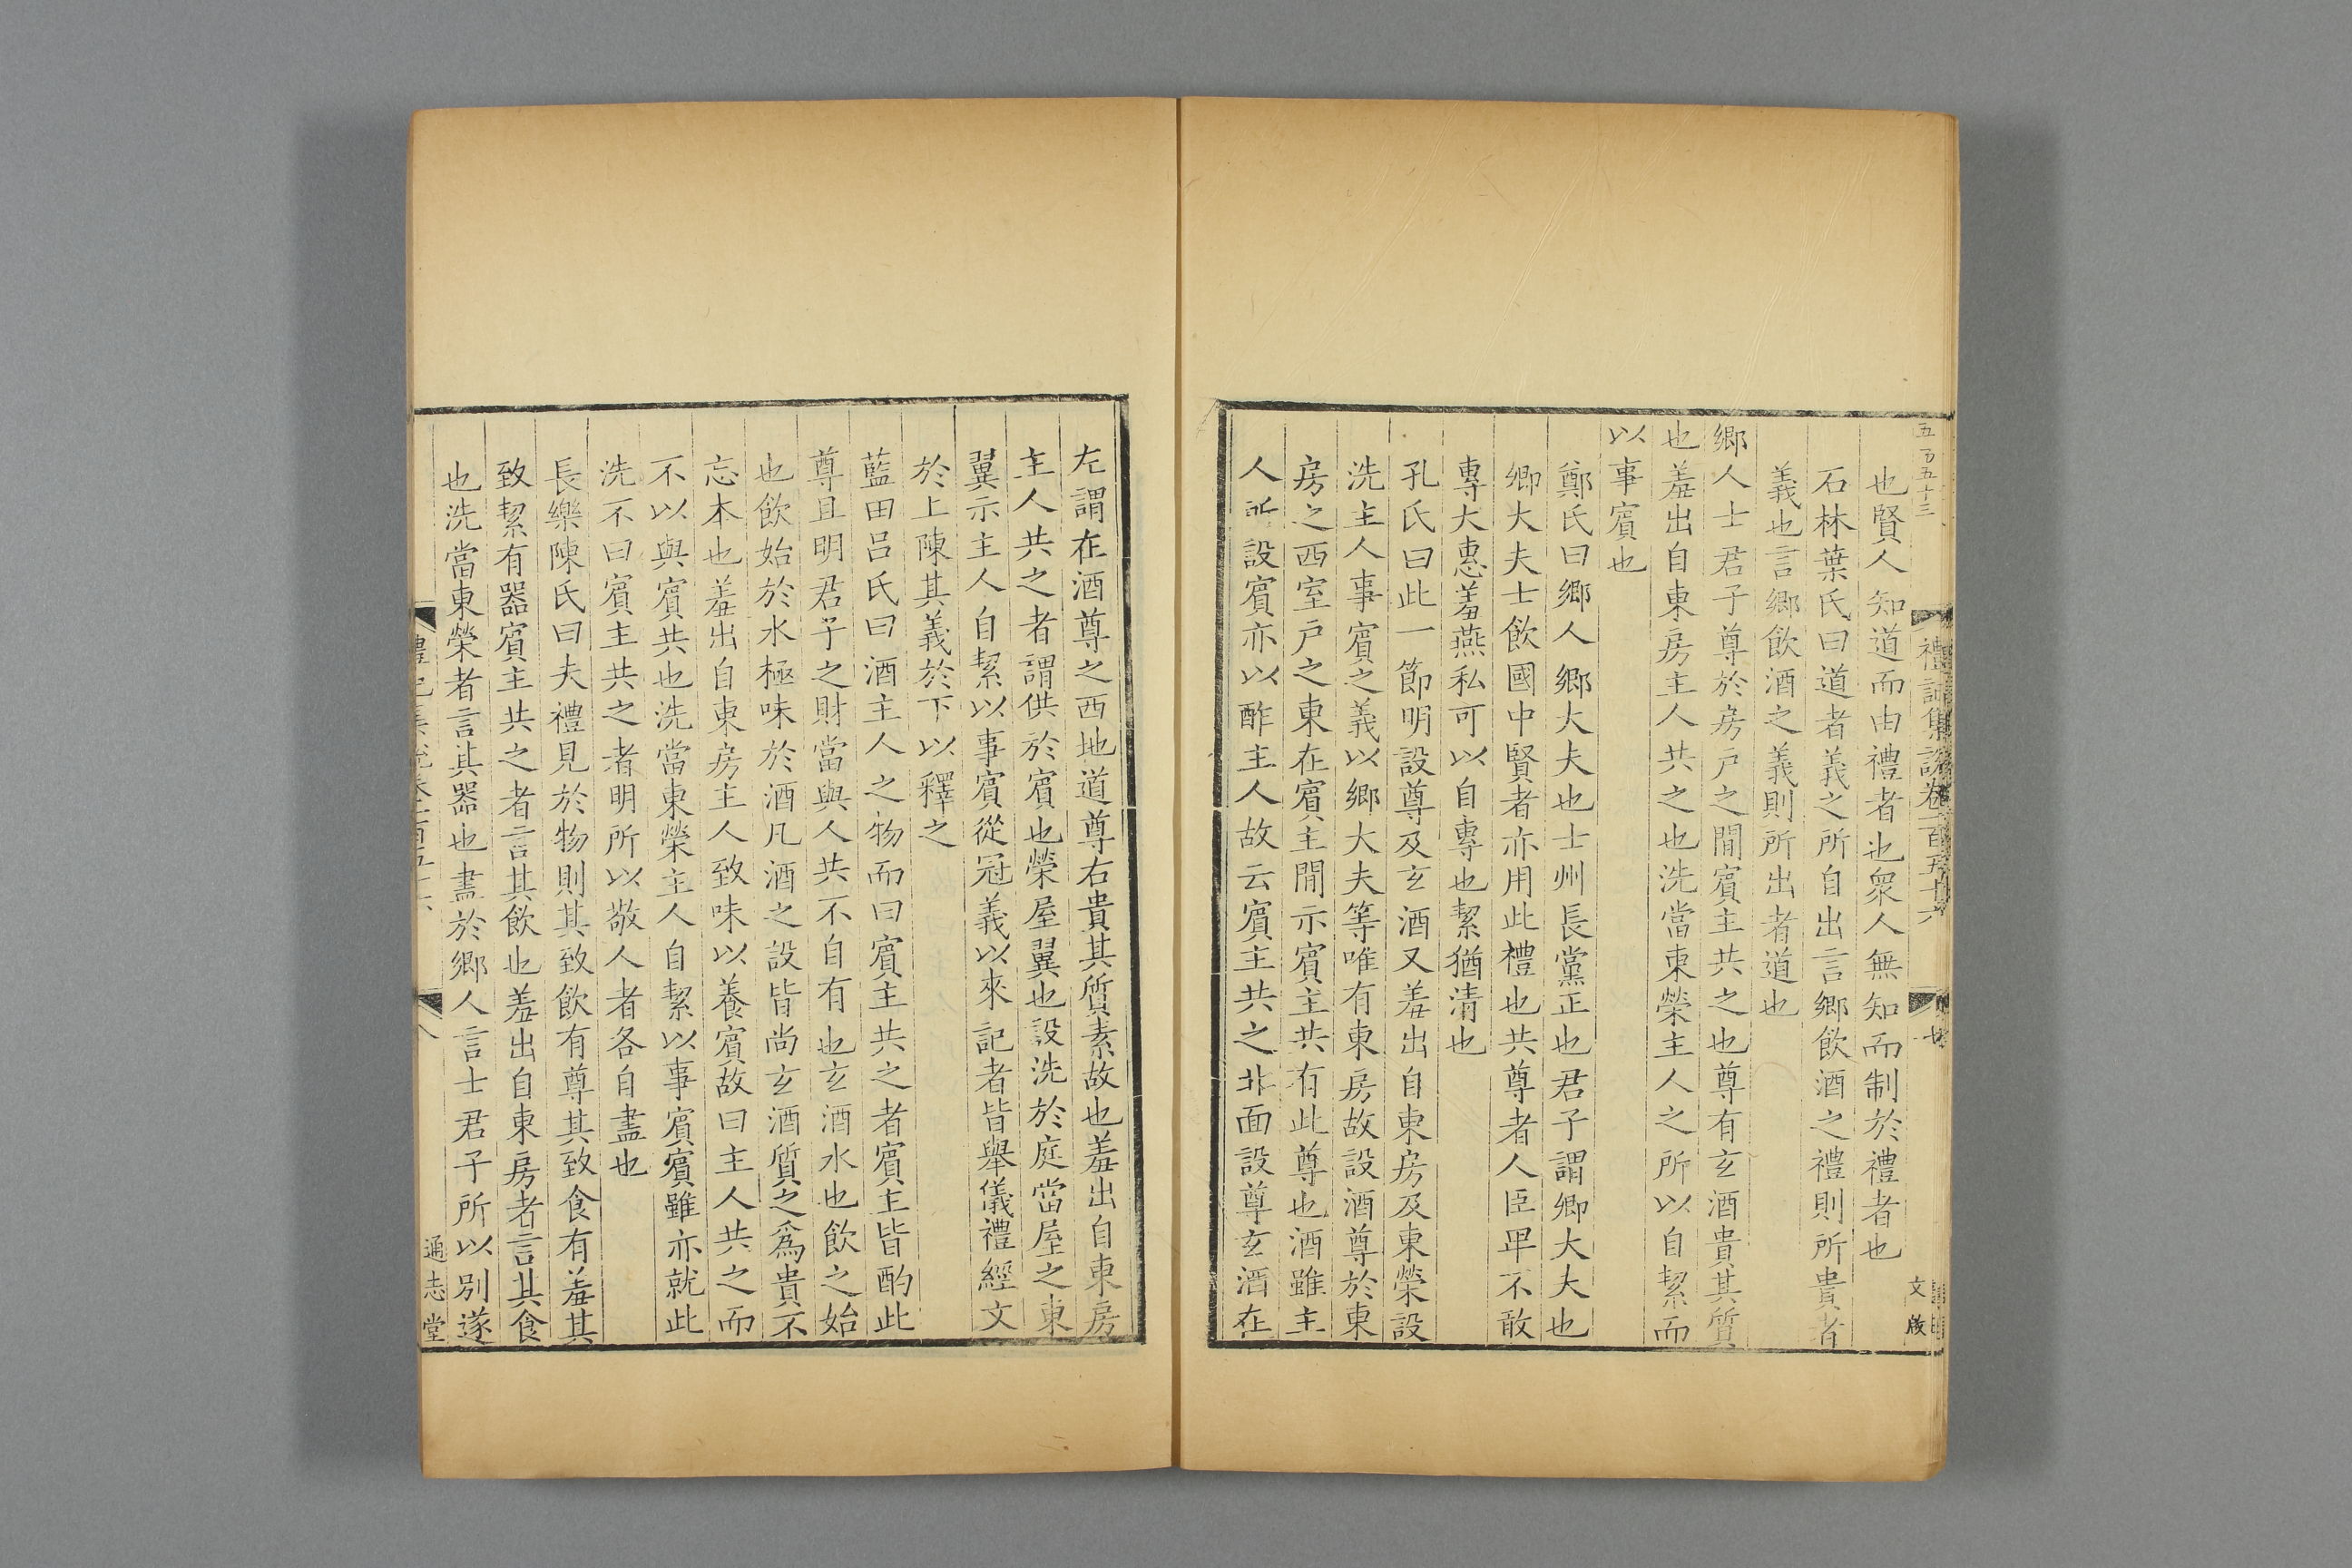 五百五十三
禮記集說卷一百五十六
七
文
也賢人知道而由禮者也衆人無知而制於禮者也
石林葉氏曰道者義之所自出言鄉飲酒之禮則所貴者
義也言鄉飲酒之義則所出者道也
鄉人士君子尊於房戶之間賓主共之也尊有玄酒貴其質
也羞出自東房主人共之也洗當東榮主人之所以自絜而
以事賓也
鄭氏曰鄉人鄉大夫也士州長黨正也君子謂卿大夫也
卿大夫士飲國中賢者亦用此禮也共尊者人臣卑不敢
專大惠羞燕私可以自專也絜猶清也
孔氏曰此一節明設尊及玄酒又羞出自東房及東榮設
洗主人事賓之義以鄉大夫等唯有東房故設酒尊於東
房之西室戶之東在賓主間示賓主共有此尊也酒雖主
人所設賓亦以酢主人故云賓主共之北面設尊玄酒在
左謂在酒尊之西地道尊右貴其質素故也羞出自東房
主人共之者謂供於賓也榮屋翼也設洗於庭當屋之東
翼示主人自絜以事賓從冠義以來記者皆舉儀禮經文
於上陳其義於下以釋之
藍田呂氏曰酒主人之物而曰賓主共之者賓主皆酌此
尊且明君子之財當與人共不自有也玄酒水也飲之始
也飲始於水極味於酒凡酒之設皆尚玄酒質之爲貴不
忘本也羞出自東房主人致味以養賓故曰主人共之而
不以與賓共也洗當東榮主人自絜以事賓賓雖亦就此
洗不曰賓主共之者明所以敬人者各自盡也
長樂陳氏曰夫禮見於物則其致飲有尊其致食有羞其
致絜有器賓主共之者言其飲也羞出自東房者言其食
也洗當東榮者言其器也盡於鄉人言士君子所以別遂
八
通志堂